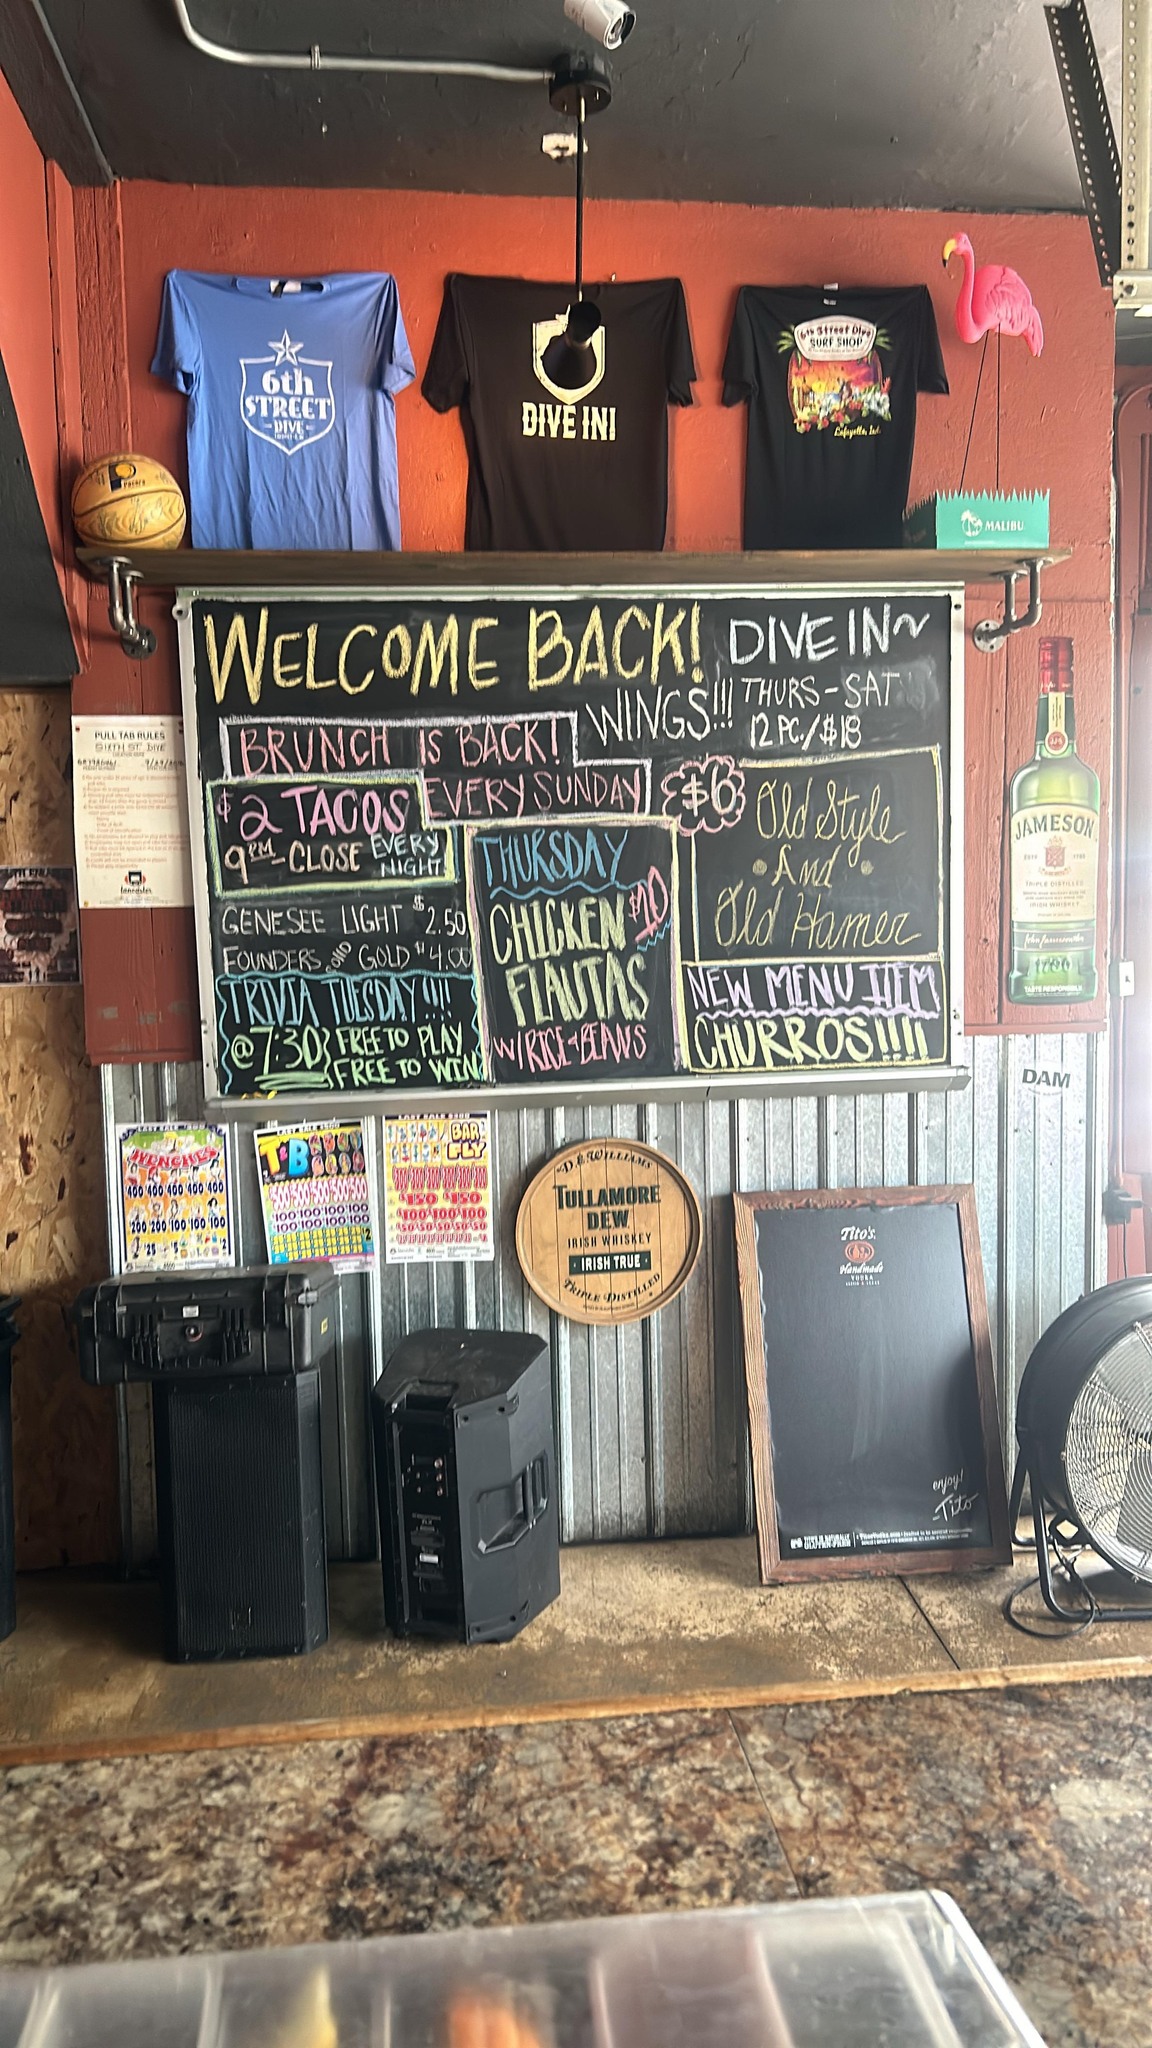 6th
STREET
DIVE
DIVE IN!
6th Street Dive
SURF SHOP
Lafayette, Ind.
Pacers
MALIBU
WELCOME BACK!
DIVE IN~
WINGS!!! THURS-SAT
12 PC./$18
BRUNCH IS BACK!
EVERY SUNDAY
$2 TACOS
9PM-CLOSE EVERY
NIGHT
GENESEE LIGHT $2.50
FOUNDERS SOLID GOLD $4.00
TRIVIA TUESDAY!!!!
@7:30 FREE TO PLAY
FREE TO WIN
THURSDAY
$10
CHICKEN
FLAUTAS
W/ RICE & BEANS
$6
Old Style
And
Old Hamer
NEW MENU ITEM
CHURROS!!!!
PULL TAB RULES
SIXTH ST DIVE
JAMESON
TRIPLE DISTILLED
IRISH WHISKEY
1780
TASTE RESPONSIBLY
DAM
WENCHES
400 400 400 400
200 200 100 100
LAST SALE $500
T&B
500 500 500 500 500
100 100 100 100
100 100 100 100
LAST SALE $500
BAR
FLY
$150 $150
D.E. WILLIAMS
TULLAMORE
DEW
IRISH WHISKEY
IRISH TRUE
TRIPLE DISTILLED
Tito's
Handmade
VODKA
AUSTIN TEXAS
enjoy!
-Tito